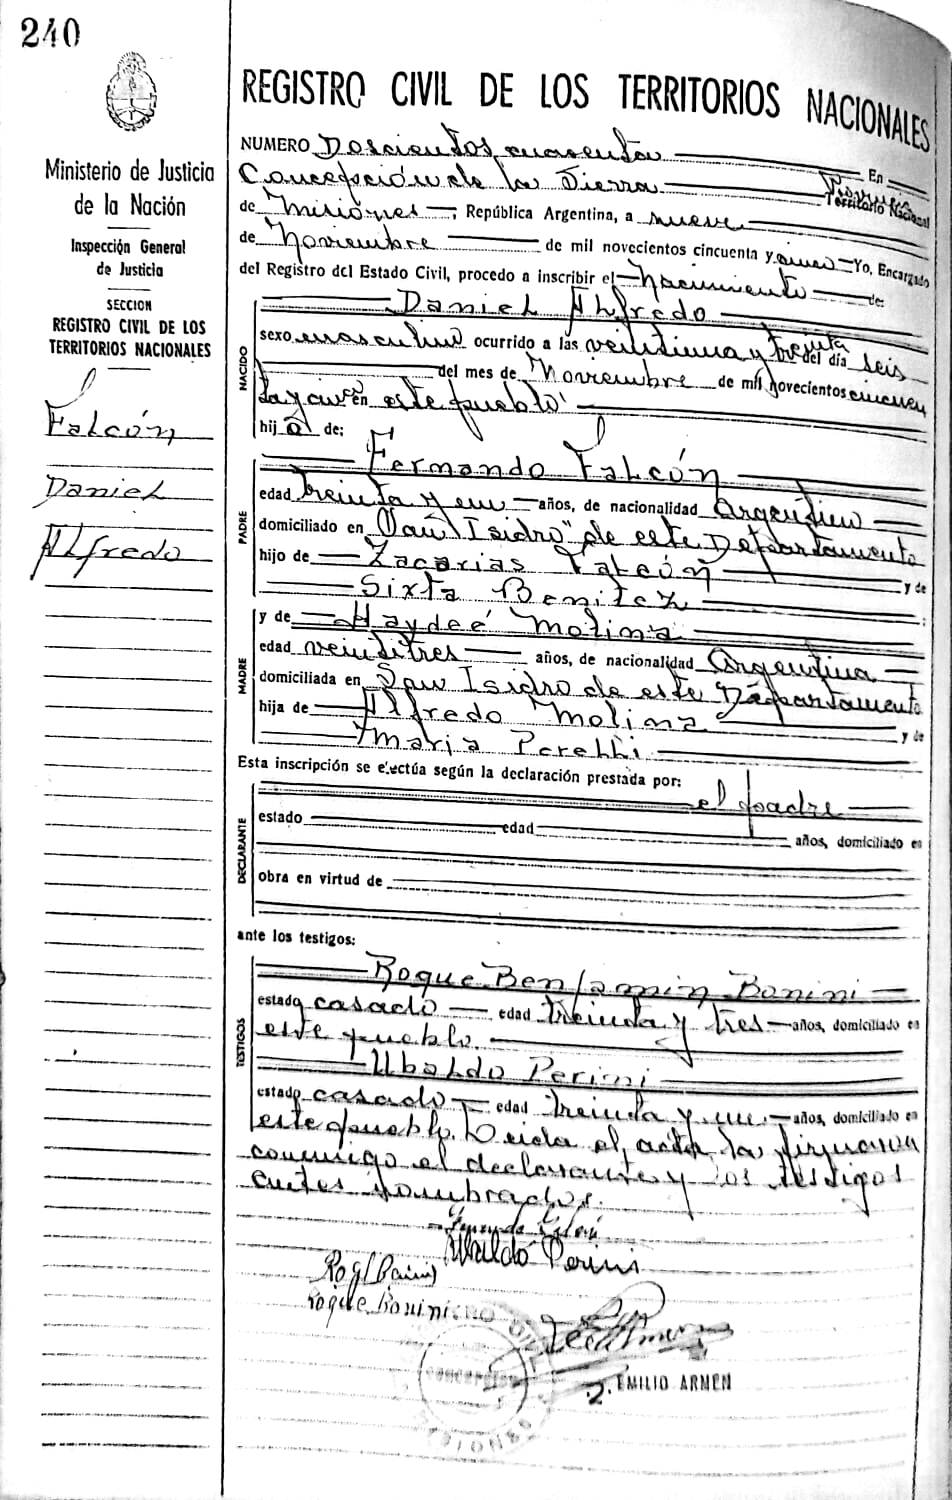 240
Ministerio de Justicia
de la Nación
Inspección General
de Justicia
SECCION
REGISTRO CIVIL DE LOS
TERRITORIOS NACIONALES
Falcón
Daniel
Alfredo
REGISTRO CIVIL DE LOS TERRITORIOS NACIONALES
NUMERO Doscientos cuarenta En
Concepción de la Sierra Provincia Territorio Nacional
de Misiones, República Argentina, a nueve
de Noviembre de mil novecientos cincuenta y cinco Yo, Encargado
del Registro del Estado Civil, procedo a inscribir el Nacimiento de:
NACIDO
Daniel Alfredo
sexo masculino ocurrido a las veintiuna y treinta del día seis
del mes de Noviembre de mil novecientos cincuen
ta y cinco en este pueblo
hijo de:
PADRE
Fernando Falcón
edad treinta y un años, de nacionalidad Argentino
domiciliado en "San Isidro" de este Departamento
hijo de Zacarias Falcón y de
Sixta Benitez
MADRE
y de Haydeé Molina
edad veintitres años, de nacionalidad Argentina
domiciliada en San Isidro de este Departamento
hija de Alfredo Molina y de
Maria Perelli
Esta inscripción se efectúa según la declaración prestada por:
DECLARANTE
el padre
estado edad años, domiciliado en
obra en virtud de
ante los testigos:
TESTIGOS
Roque Benjamin Bonini
estado casado edad treinta y tres años, domiciliado en
este pueblo.
Ubaldo Perini
estado casado edad treinta y un años, domiciliado en
este pueblo. Leida el acta, la firmaron
conmigo el declarante y los testigos
antes nombrados.
Fernando Falcón
Ubaldo Perini
Roque Bonini
EMILIO ARMEN